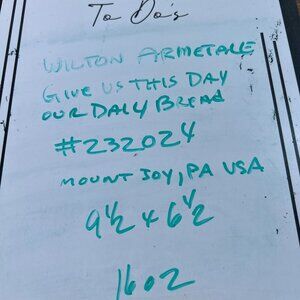 To Do's
WILTON ARMETALE
GIVE US THIS DAY
OUR DAILY BREAD
#232024
MOUNT JOY, PA USA
9 1/2 x 6 1/2
16 oz